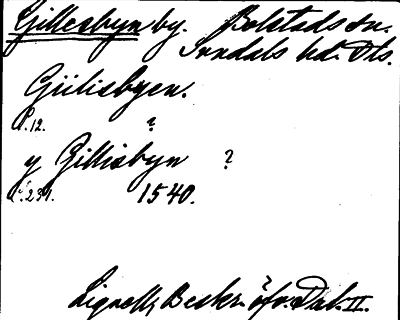 Gillesbyn by. Bolstads sn.
Sundals hd. Dls.
Gülisbyen.
S. 12. ?
y Gillisbyn ?
S. 231. 1540.
Lignell, Beskr. öfv. Dal. II.